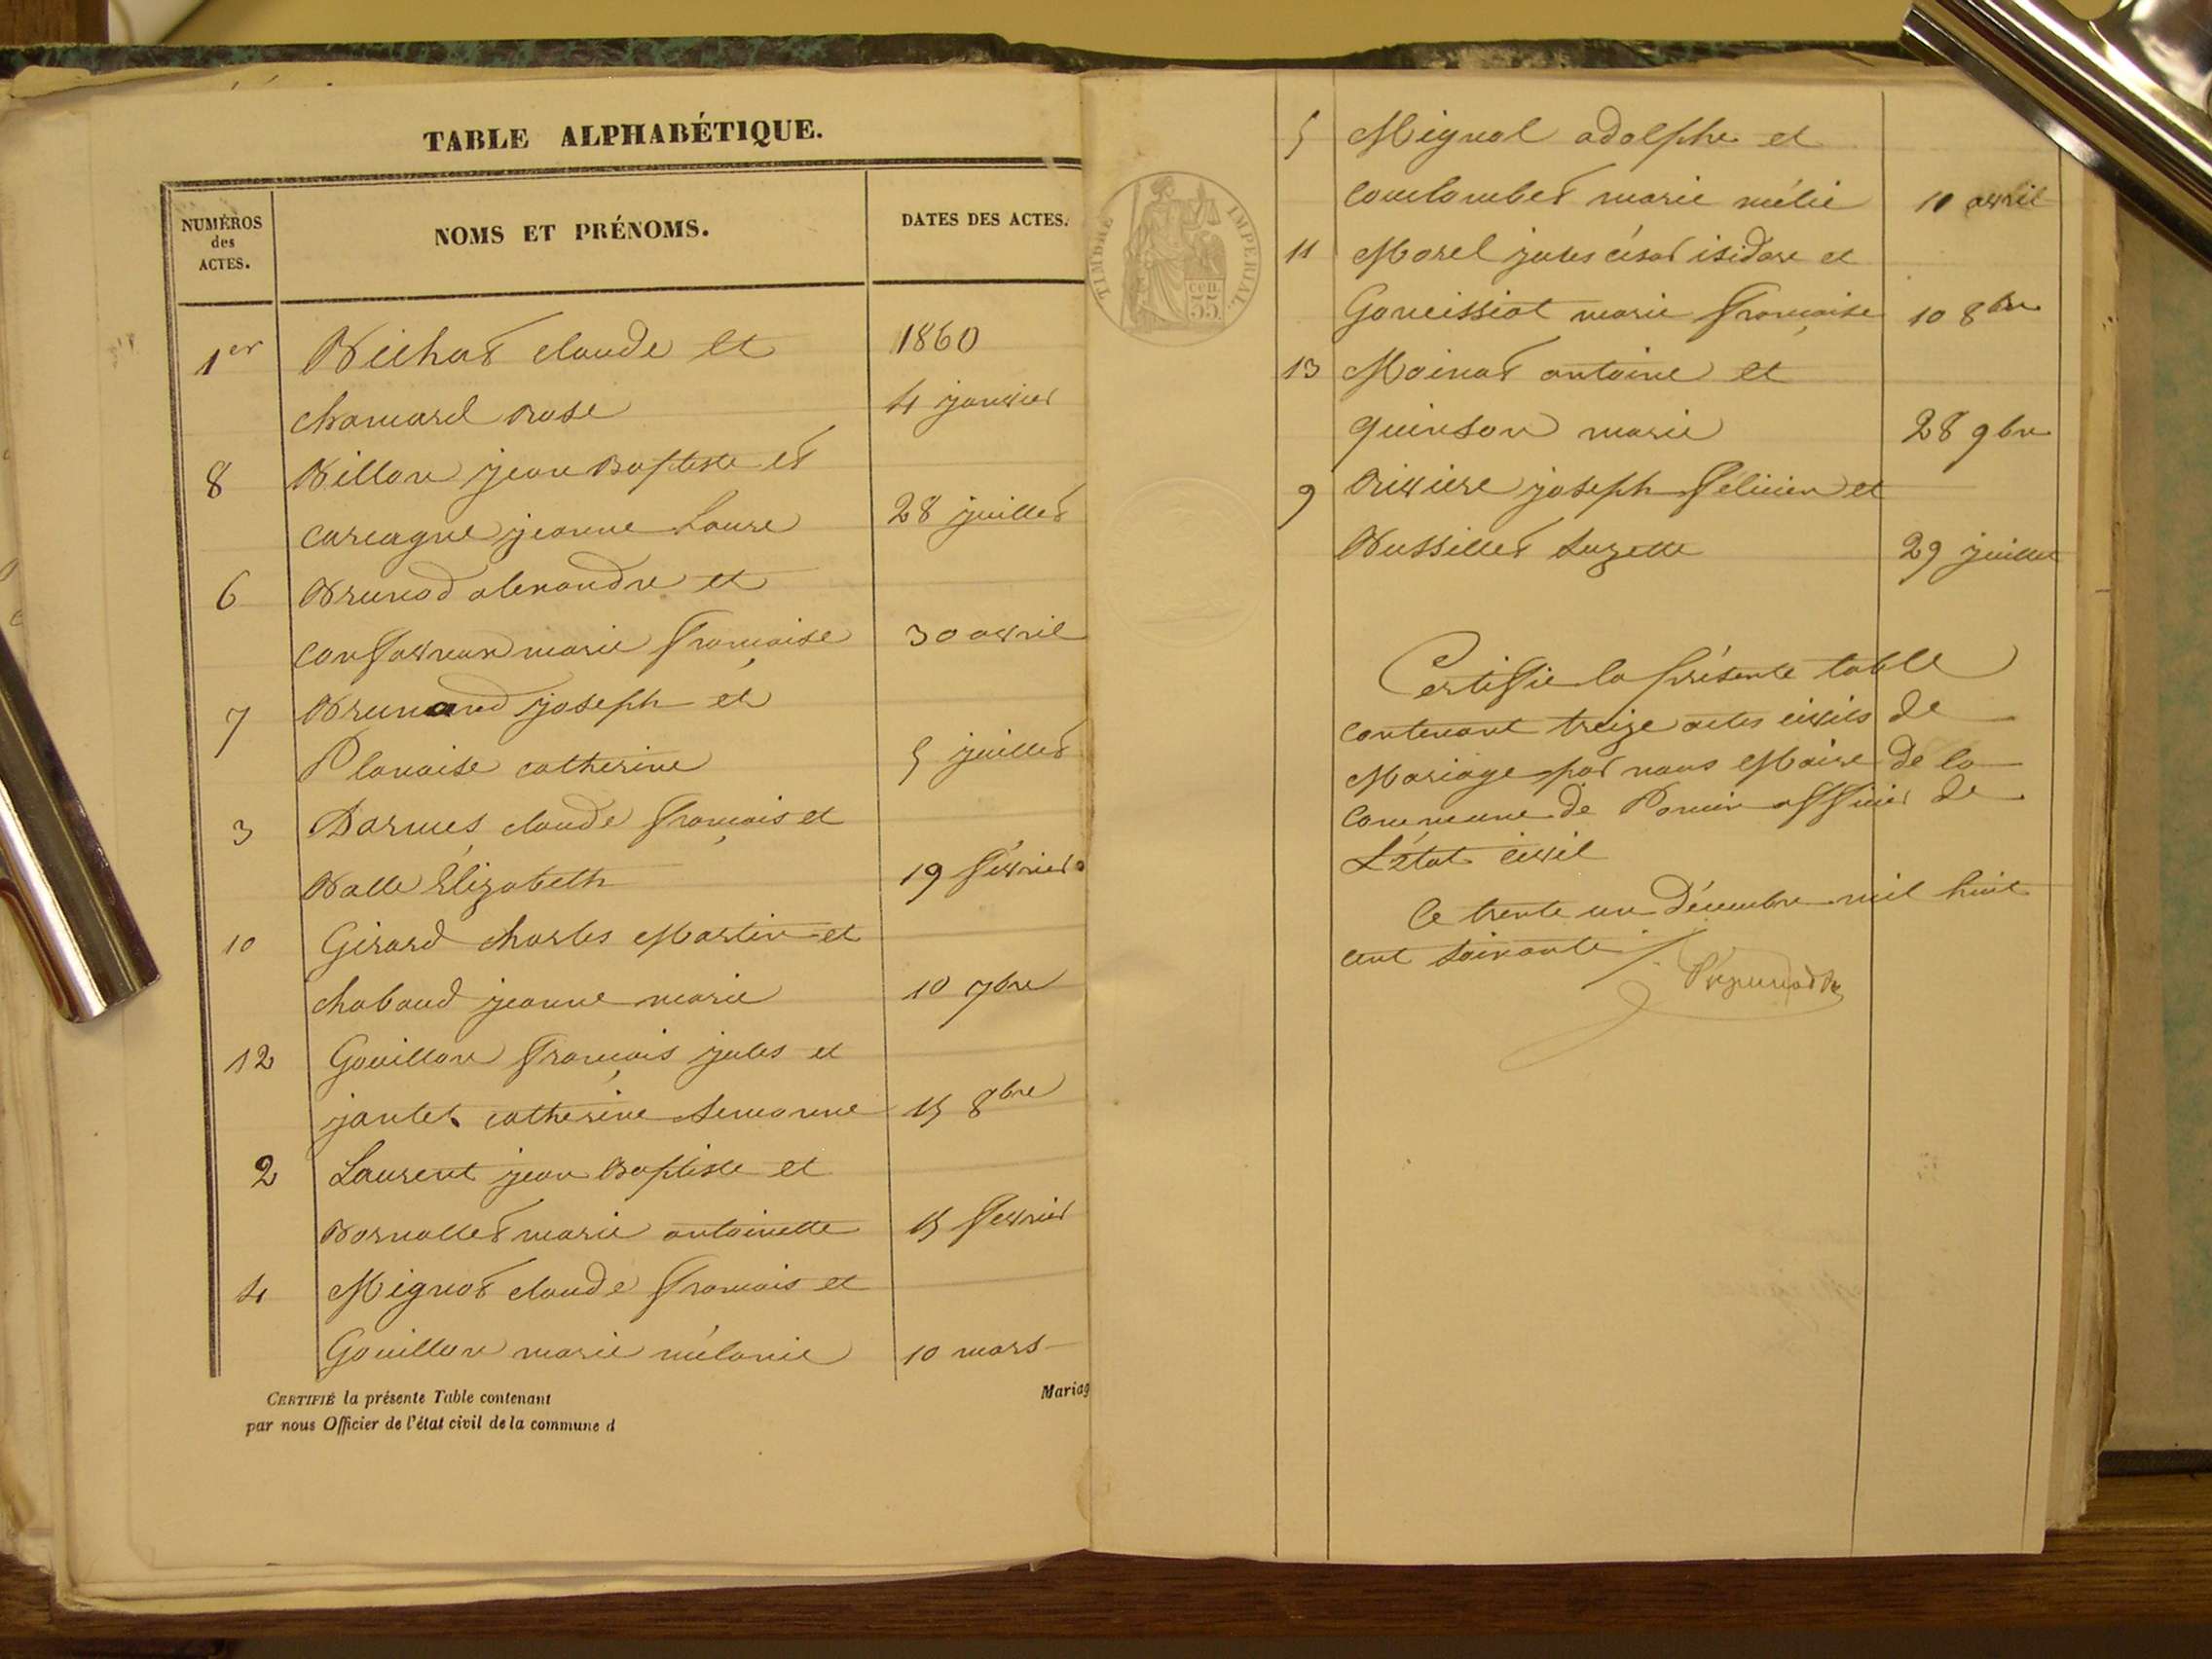 TABLE ALPHABÉTIQUE.
NUMÉROS
des
ACTES.
NOMS ET PRÉNOMS.
DATES DES ACTES.
1er Bichat claude et 1860
chamard rose 4 janvier
8 Billon jean Baptiste et
carcagne jeanne Laure 28 juillet
6 Brunod alexandre et
Confavreux marie françoise 30 avril
7 Brunand joseph et
Planaise catherine 5 juillet
3 Darmes claude françois et
Balle Elizabeth 19 février
10 Girard charles Martin et
chabaud jeanne marie 10 7bre
12 Gouillon françois jules et
jantet catherine 15 8bre
2 Laurent jean Baptiste et
Bornallet marie antoinette 15 février
4 Mignot claude françois et
Gouillon marie mélanie 10 mars
CERTIFIÉ la présente Table contenant
Mariag
par nous Officier de l'état civil de la commune d
TIMBRE IMPÉRIAL
cen.
55
5 Mignot adolphe et
coulombet marie mélie 10 avril
11 Morel jules césar isidore et
Goneissiat marie françoise 10 8bre
13 Moinat antoine et
quinson marie 28 9bre
9 Rivière joseph félicien et
Bussillet Suzette 29 juillet
Certifie la présente table
contenant treize actes civils de
Mariage par nous Maire de la
Commune de Poncin officier de
L'état civil
Ce trente un Décembre mil huit
cent soixante